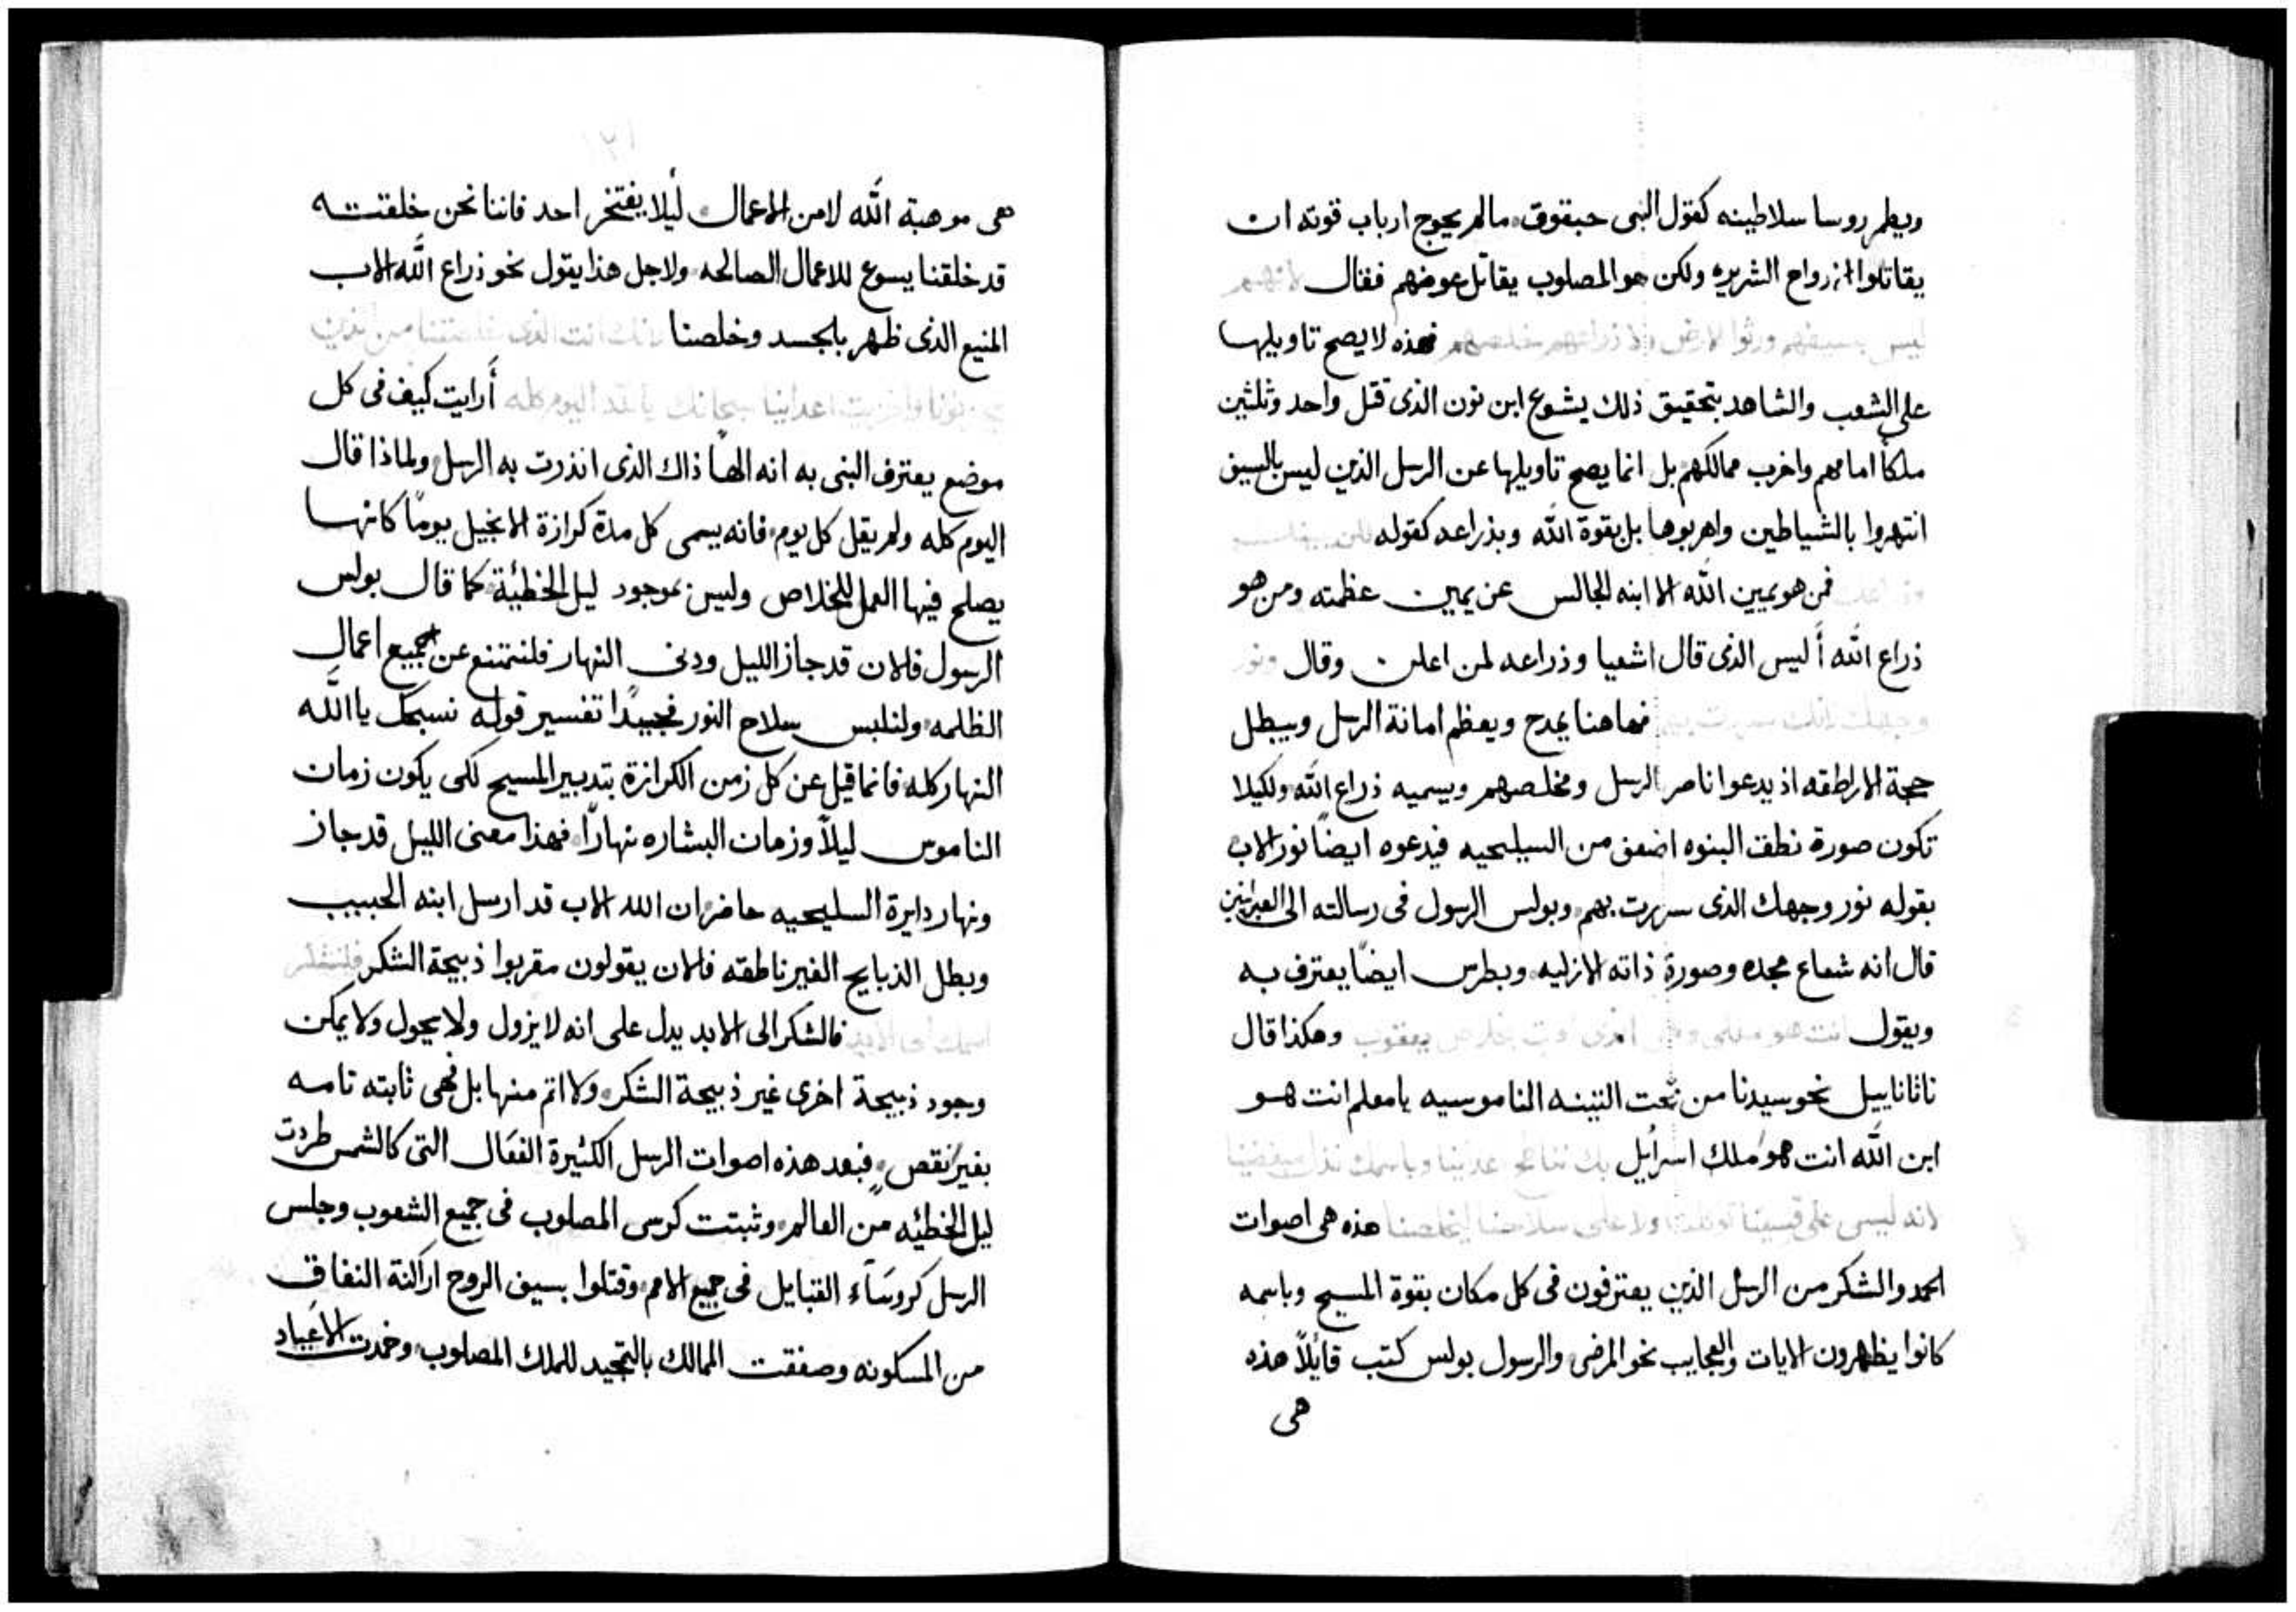 ويطمر روسا سلاطينه كقول النبى حبقوق. مالم يحوج ارباب قوته ان
يقاتلوا الارواح الشريره ولكن هو المصلوب يقاتل عوضهم فقال لانهم
ليس بسيفهم ورثوا الارض ولا ذراعهم خلصهم فهذه لا يصح تاويلها
على الشعب والشاهد بتحقيق ذلك يشوع ابن نون الذى قتل واحد وثلثين
ملكاً امامهم واخرب ممالكهم بل انما يصح تاويلها عن الرسل الذين ليس بالسيف
انتهروا بالشياطين واهربوها بل بقوة الله وبذراعه كقوله لكن يمينك
وذراعك فمن هو يمين الله الا ابنه الجالس عن يمين عظمته ومن هو
ذراع الله أليس الذى قال اشعيا وذراعه لمن اعلن. وقال ونور
وجهك لانك سررت بهم فهاهنا يمدح ويعظم امانة الرسل ويبطل
حجة الاراطقه اذ يدعوا ناصر الرسل ومخلصهم ويسميه ذراع الله ولكيلا
تكون صورة نطق البنوه اضعف من السليحيه فيدعوه ايضاً نور الاب
بقوله نور وجهك الذى سررت بهم. وبولس الرسول فى رسالته الى العبرانيين
قال انه شعاع مجده وصورة ذاته الازليه. وبطرس ايضاً يعترف به
ويقول انت هو ملكى والهى الذى اوت بخلاص يعقوب وهكذا قال
ناثاناييل نحو سيدنا من تحت التينه الناموسيه يا معلم انت هو
ابن الله انت هو ملك اسراييل بك ننطح اعدينا وباسمك نذل مبغضينا
لانه ليس على قسينا توكلت ولا على سلاحنا ليخلصنا هذه هى اصوات
الحمد والشكر من الرسل الذين يعترفون فى كل مكان بقوة المسيح وباسمه
كانوا يظهرون الايات والعجايب نحو المرضى والرسول بولس كتب قايلاً هذه
هى
هى موهبة الله لا من الاعمال ليلا يفتخر احد فاننا نحن خلقته
قد خلقنا يسوع للاعمال الصالحه. ولاجل هذا يقول نحو ذراع الله الاب
المنيع الذى ظهر بالجسد وخلصنا لانك انت الذى خلصتنا من الذين
يحزنونا واخزيت اعداينا سبحانك يا الله اليوم كله أرايت كيف فى كل
موضع يعترف النبى به انه الهاً ذاك الذى انذرت به الرسل. ولماذا قال
اليوم كله ولم يقل كل يوم. فانه يسمى كل مدة كرازة الانجيل يوماً كانها
يصلح فيها العمل للخلاص وليس بموجود ليل الخطئة كما قال بولس
الرسول فالان قد جاز الليل ودنى النهار فلنمتنع عن جميع اعمال
الظلمه ولنلبس سلاح النور فجيداً تفسير قوله نسبحك يا الله
النهار كله. فانما قيل عن كل زمن الكرازة بتدبير المسيح لكى يكون زمان
الناموس ليلاً وزمان البشاره نهاراً. فهذا معنى الليل قد جاز
ونهار دايرة السليحيه حاضر. ان الله الاب قد ارسل ابنه الحبيب
وبطل الذبايح الغير ناطقه فالان يقولون مقربوا ذبيحة الشكر فلنشكر
اسمك الى الابد فالشكر الى الابد يدل على انه لا يزول ولا يحول ولا يمكن
وجود ذبيحة اخرى غير ذبيحة الشكر. ولا اتم منها بل فهى ثابته تامه
بغير نقص. فبعد هذه اصوات الرسل الكثيرة الفعال التى كالشمس طردت
ليل الخطئه من العالم. وثبتت كرسى المصلوب فى جميع الشعوب وجلس
الرسل كروساء القبايل فى جميع الامم. وقتلوا بسيف الروح اراكنة النفاق
من المسكونه وصفقت الممالك بالتمجيد للملك المصلوب. وخمدت الاعياد